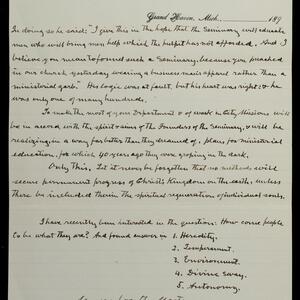 Grand Haven, Mich., 189
In doing so he said: "I give this in the hope that the Seminary will educate
men who will bring men help which the pulpit has not afforded. And I
believe you mean to found such a Seminary, because you preached
in our church yesterday wearing a business man's apparel rather than
a ministerial garb." His logic was at fault, but his heart was right & he
was only one of many hundreds.
To make the most of your Department & of work in City Missions will
be in accord with the spirit & aims of the Founders of the Seminary, & will be
realizing in a way far better than they dreamed of, plans for ministerial
education, for which 40 years ago they were groping in the dark.
Only this, Let it never be forgotten that no methods will
secure permanent progress of Christ's Kingdom on the earth, unless
there be included therein the spiritual regeneration of individual souls.
I have recently been interested in the question: How come people
to be what they are? And found answer in 1. Heredity.
2. Temperament.
3. Environment.
4. Divine sway.
5. Autonomy.